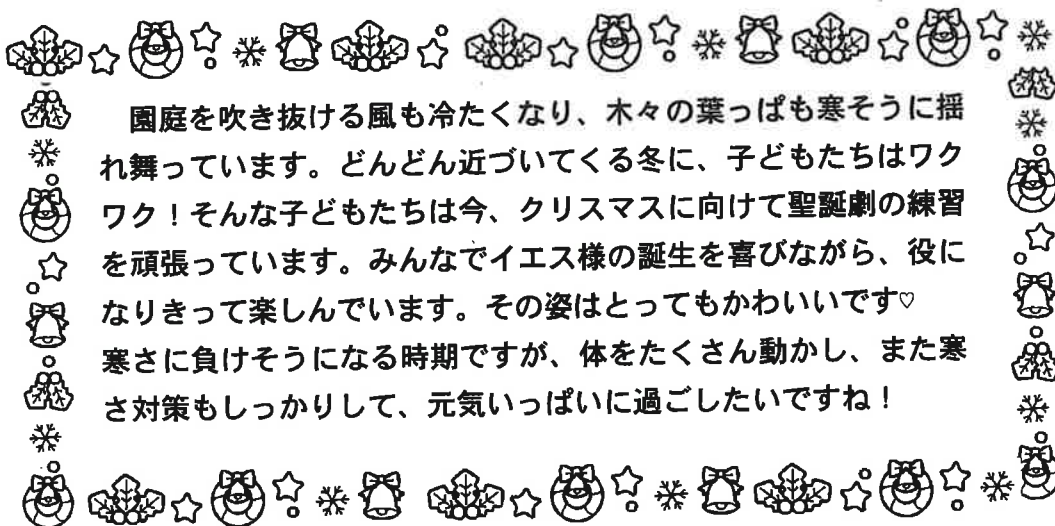 園庭を吹き抜ける風も冷たくなり、木々の葉っぱも寒そうに揺
れ舞っています。どんどん近づいてくる冬に、子どもたちはワク
ワク！そんな子どもたちは今、クリスマスに向けて聖誕劇の練習
を頑張っています。みんなでイエス様の誕生を喜びながら、役に
なりきって楽しんでいます。その姿はとってもかわいいです♡
寒さに負けそうになる時期ですが、体をたくさん動かし、また寒
さ対策もしっかりして、元気いっぱいに過ごしたいですね！